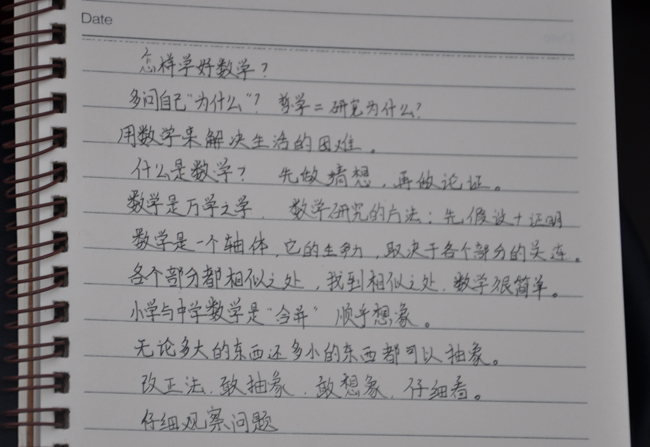 Date
怎样学好数学？
多问自己"为什么"？ 哲学=研究为什么？
用数学来解决生活的困难。
什么是数学？ 先做猜想，再做论证。
数学是万学之学． 数学研究的方法：先假设+证明
数学是一个轴体，它的生命力，取决于各个部分的关连。
各个部分都相似之处，找到相似之处．数学很简单。
小学与中学数学是"合并" 顺乎想象。
无论多大的东西还多小的东西都可以抽象。
改正法．敢抽象．敢想象．仔细看。
仔细观察问题